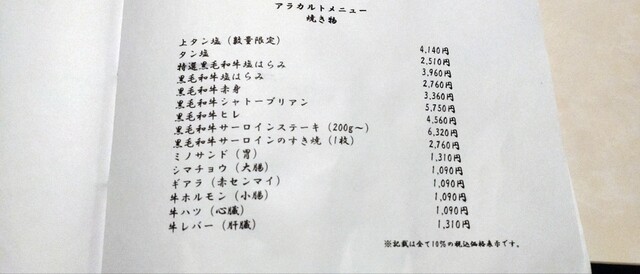 アラカルトメニュー
焼き物
上タン塩（数量限定） 4,140円
タン塩 2,510円
特選黒毛和牛塩はらみ 3,960円
黒毛和牛塩はらみ 2,760円
黒毛和牛赤身 3,360円
黒毛和牛シャトーブリアン 5,750円
黒毛和牛ヒレ 4,560円
黒毛和牛サーロインステーキ（200g～） 6,320円
黒毛和牛サーロインのすき焼（1枚） 2,760円
ミノサンド（胃） 1,310円
シマチョウ（大腸） 1,090円
ギアラ（赤センマイ） 1,090円
牛ホルモン（小腸） 1,090円
牛ハツ（心臓） 1,090円
牛レバー（肝臓） 1,310円
※記載は全て10%の税込価格表示です。